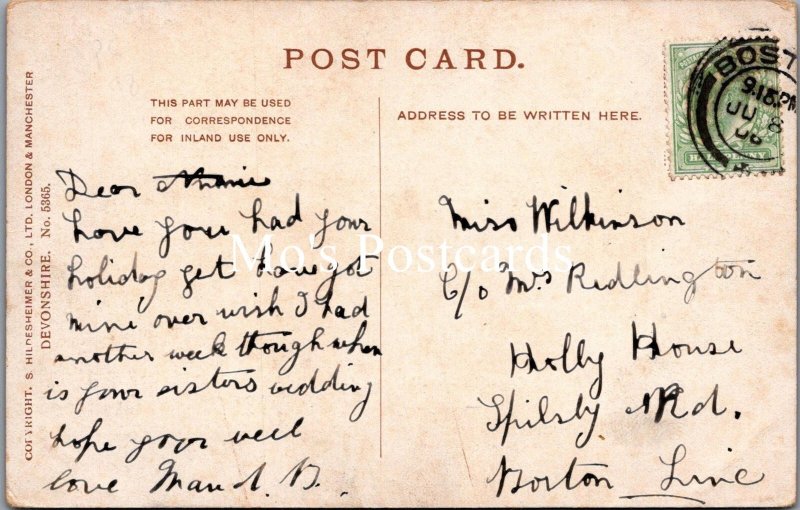 POST CARD.
THIS PART MAY BE USED
FOR CORRESPONDENCE
FOR INLAND USE ONLY.
ADDRESS TO BE WRITTEN HERE.
COPYRIGHT. S. HILDESHEIMER & CO., LTD. LONDON & MANCHESTER
DEVONSHIRE. No. 5365.
BOST
9.15.PM
JU 8
06
HALFPENNY
Dear Annie
have you had your
holiday yet have got
mine over wish I had
another week though when
is your sisters wedding
hope your well
love Maud. B.
Miss Wilkinson
C/o Mrs Redlington
Holly House
Spilsby Rd.
Boston Linc
Mo's Postcards